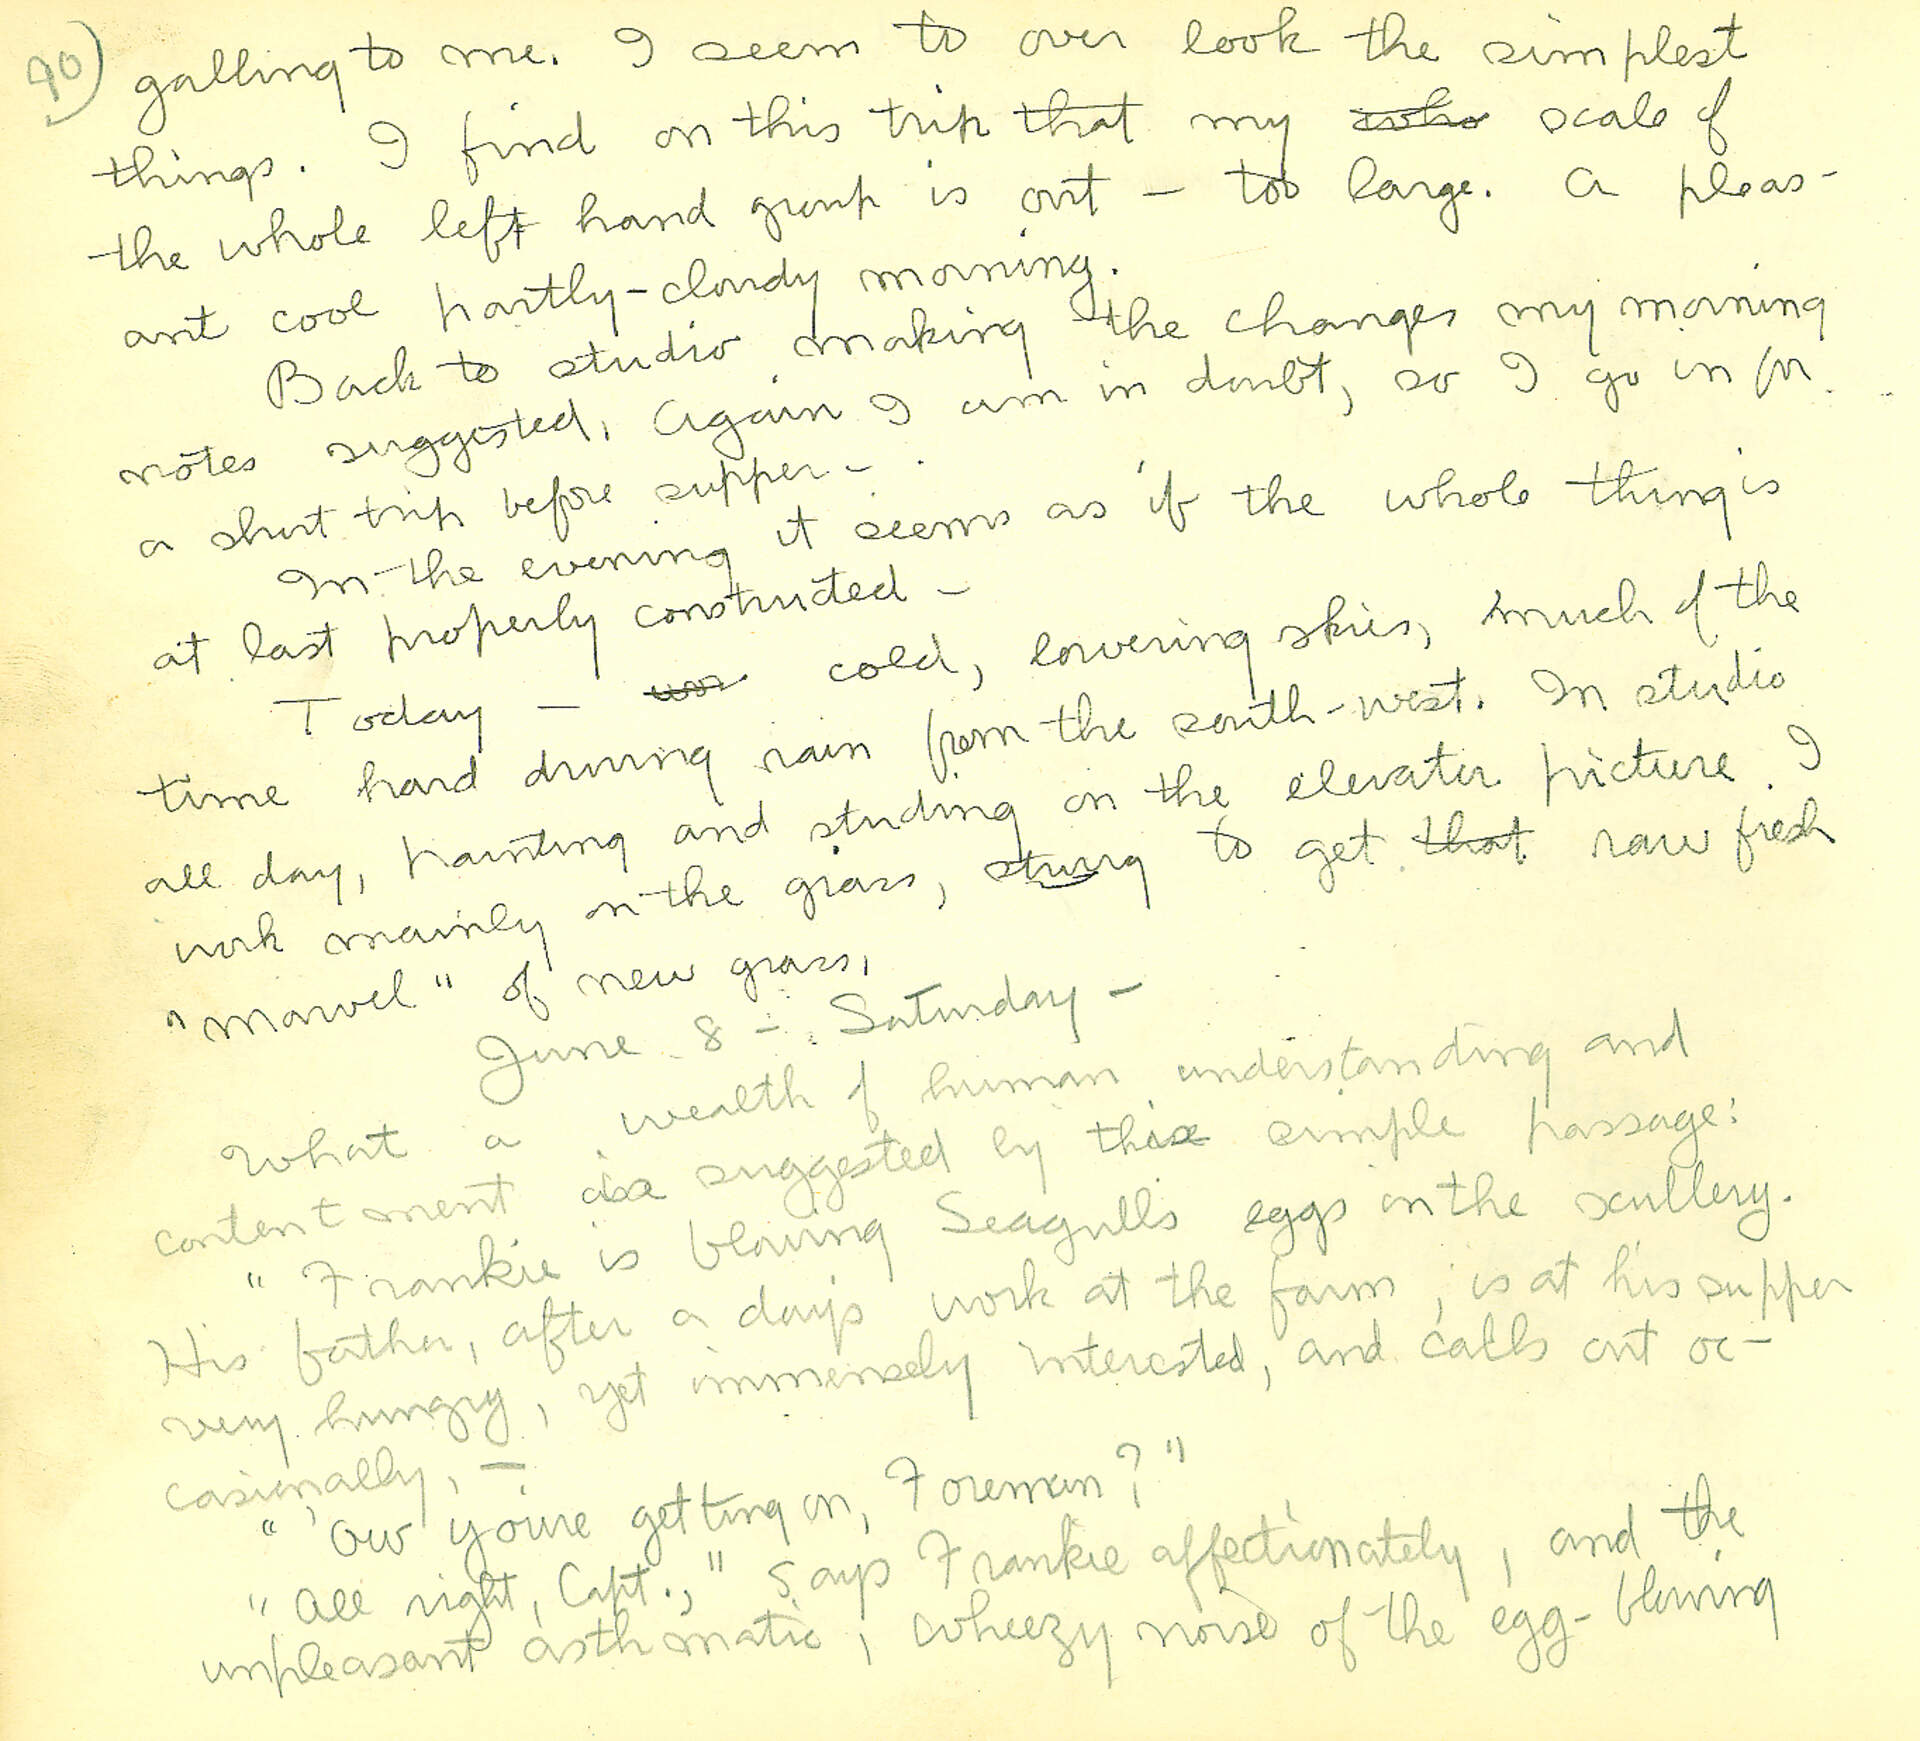 90) galling to me. I seem to over look the simplest
things. I find on this trip that my who scale of
the whole left hand group is out – too large. A pleas-
ant cool partly-cloudy morning.
Back to studio making the changes my morning
notes suggested. Again I am in doubt, so I go in for
a short trip before supper –
In the evening it seems as if the whole thing is
at last properly constructed –
Today – cold, lowering skies, much of the
time hard driving rain from the south-west. In studio
all day, painting and studing on the elevator picture. I
work mainly on the grass, trying to get that raw fresh
"marvel" of new grass.
June 8 – Saturday –
What a wealth of human understanding and
contentment is suggested by this simple passage:
"Frankie is blowing Seagulls eggs in the scullery.
His father, after a days work at the farm, is at his supper
very hungry, yet immensely interested, and calls out oc-
casionally, –
"'Ow you're getting on, Foreman?"
"All right, Capt.," says Frankie affectionately, and the
unpleasant asthmatic, wheezy noise of the egg-blowing